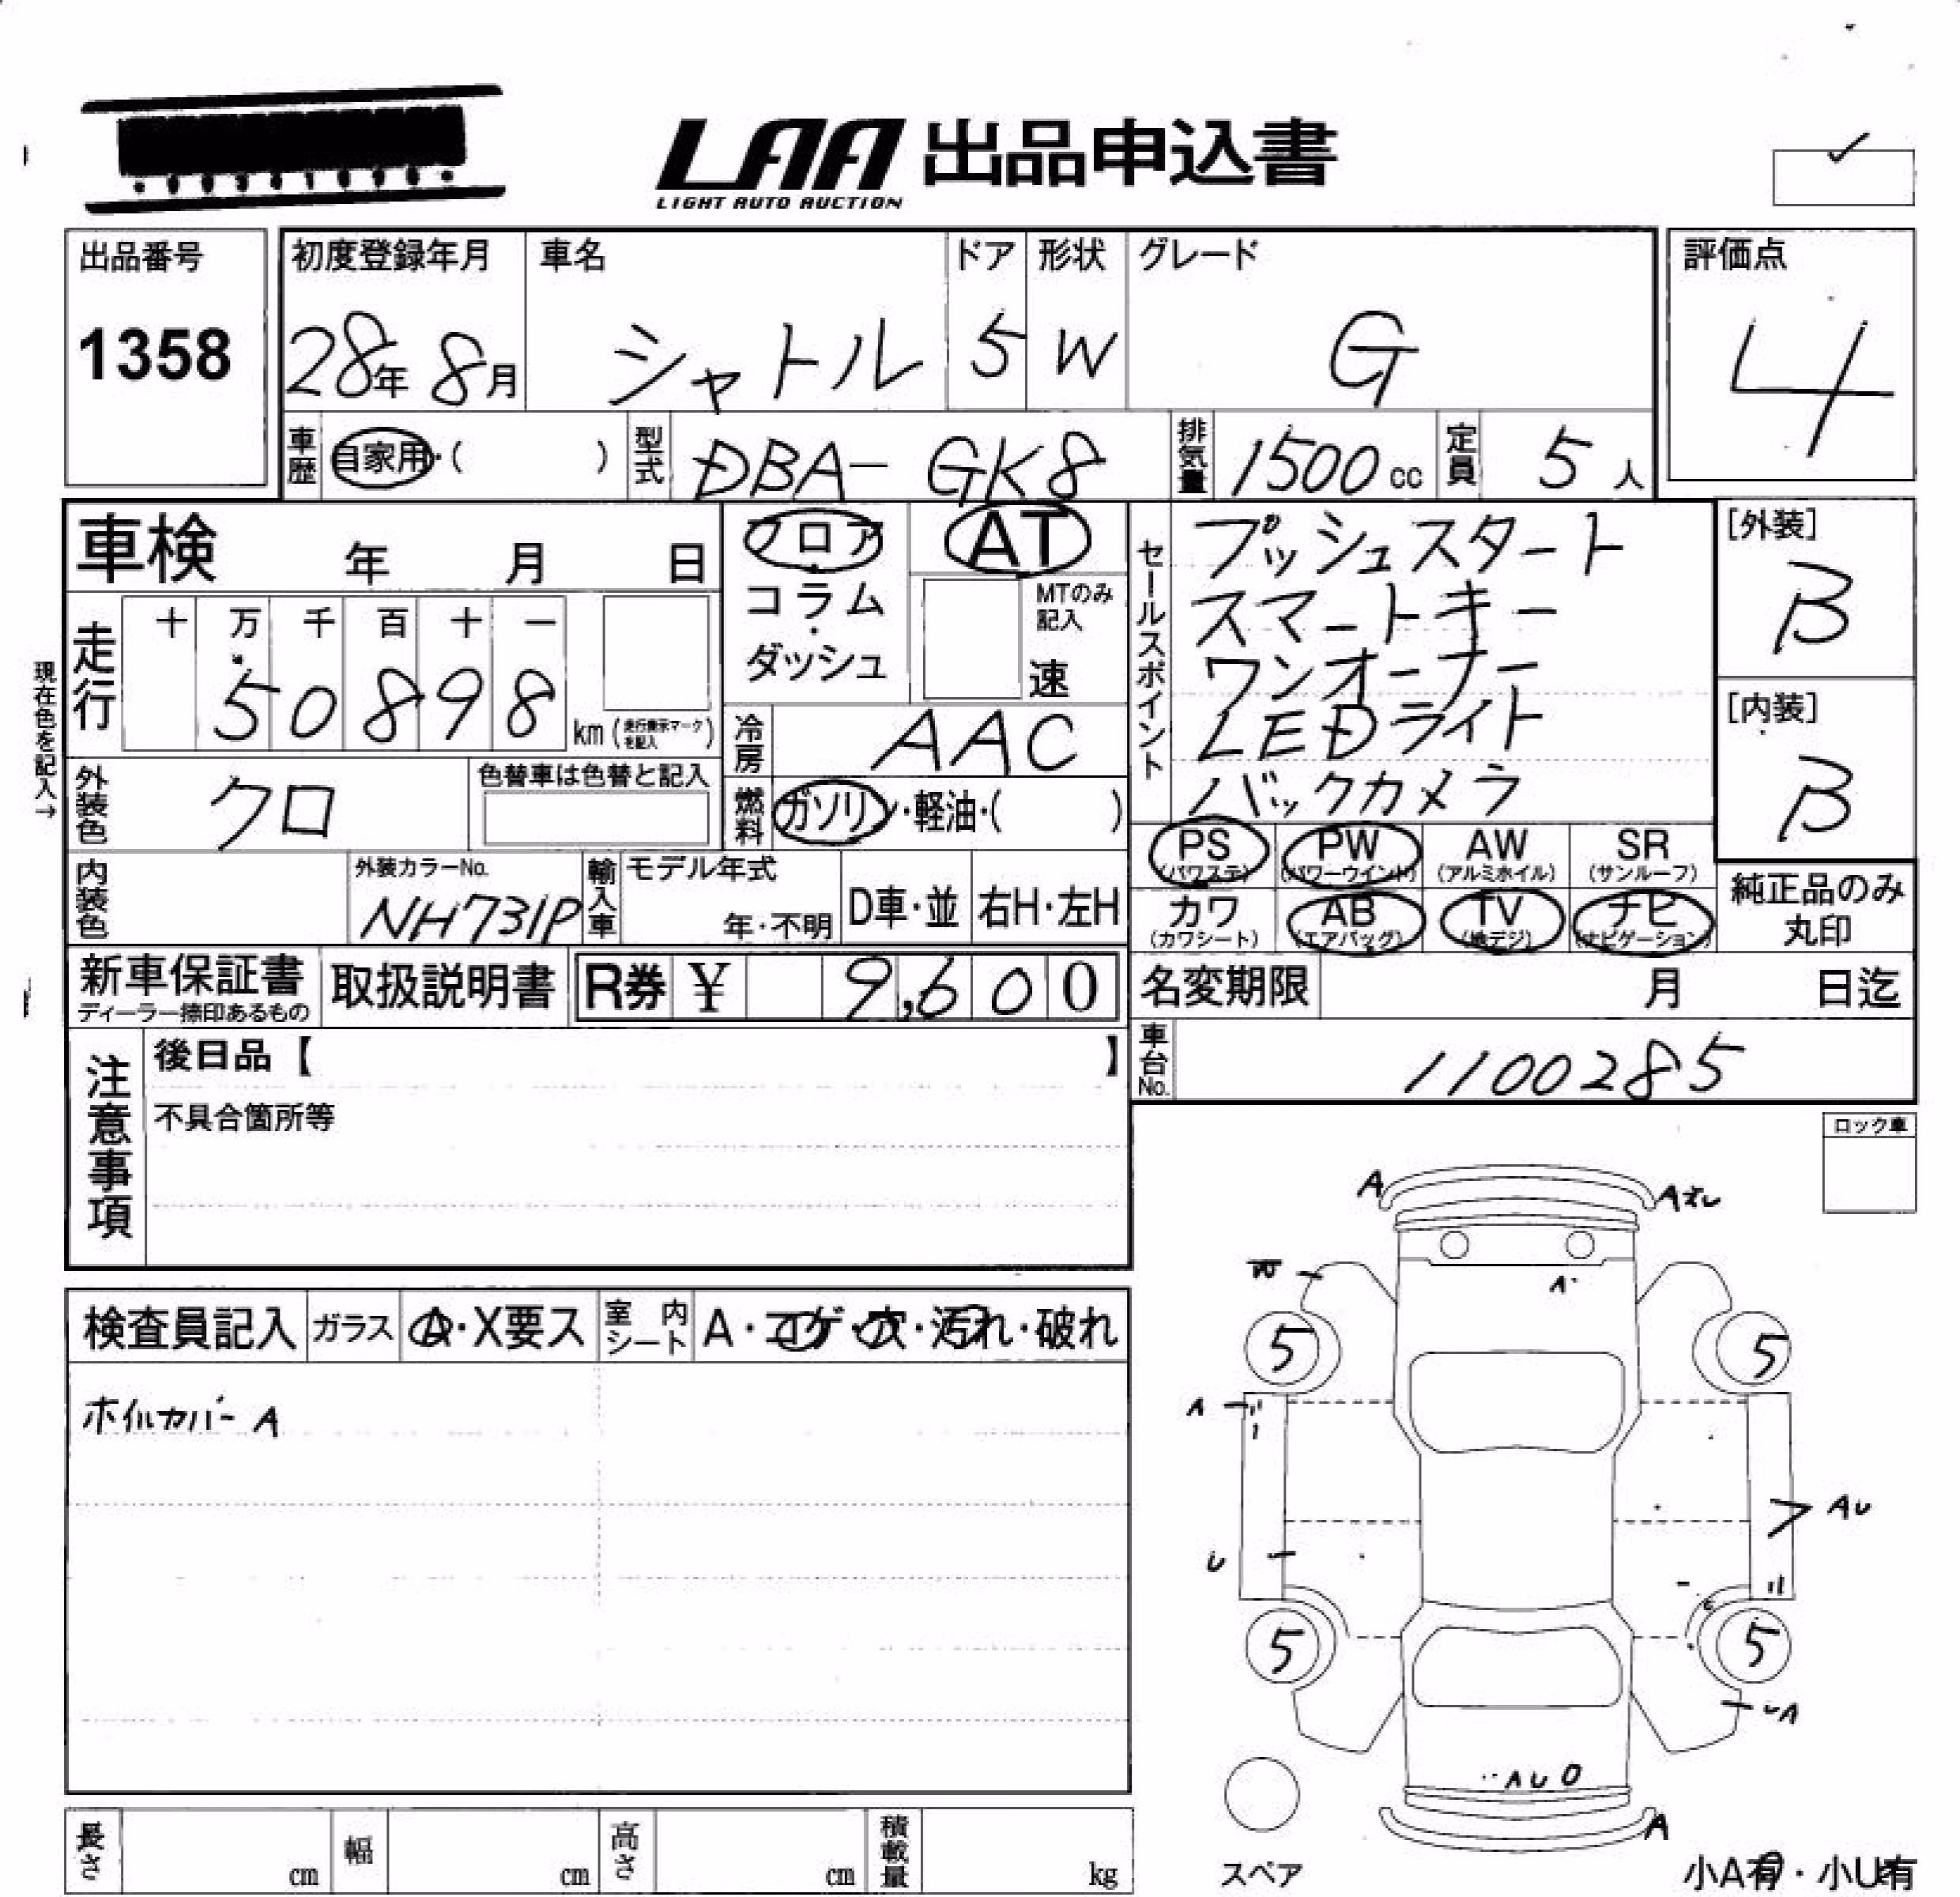 LAA 出品申込書
LIGHT AUTO AUCTION
出品番号
1358
初度登録年月
28年 8月
車名
シャトル
ドア
5
形状
W
グレード
G
評価点
4
車歴 自家用・( )
型式 DBA-GK8
排気量 1500 cc
定員 5 人
車検 年 月 日
フロア・コラム・ダッシュ
AT
MTのみ記入
速
セールスポイント
プッシュスタート
スマートキー
ワンオーナー
LEDライト
バックカメラ
[外装]
B
[内装]
B
現在色を記入→
走行
十 万 千 百 十 一
5 0 8 9 8
km (走行表示マークを記入)
冷房 AAC
外装色 クロ
色替車は色替と記入
燃料 ガソリン・軽油・( )
PS (パワステ)
PW (パワーウインド)
AW (アルミホイル)
SR (サンルーフ)
カワ (カワシート)
AB (エアバッグ)
TV (地デジ)
ナビ (ナビゲーション)
純正品のみ
丸印
内装色
外装カラーNo.
NH731P
輸入車
モデル年式
年・不明
D車・並
右H・左H
新車保証書
ディーラー捺印あるもの
取扱説明書
R券 ¥ 9,600
名変期限 月 日迄
車台No. 1100285
注意事項
後日品【 】
不具合箇所等
ロック車
検査員記入
ガラス A・X要ス
室内シート A・コゲ・穴・汚れ・破れ
ホイルカバー A
A
A
A
5
5
A
AU
U
5
5
UA
AUO
A
スペア
小A有・小U有
長さ cm
幅 cm
高さ cm
積載量 kg